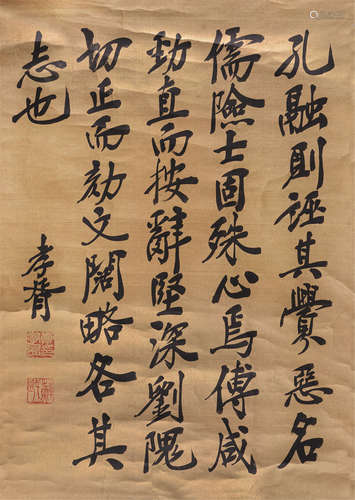 孔融則誣其釁惡名
儒險士固殊心焉傅咸
勁直而按辭堅深劉隗
切正而劾文闊略各其
志也
孝胥